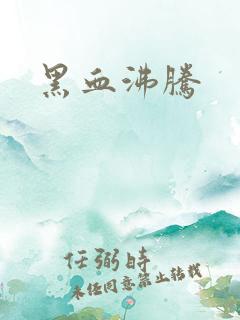 黑血沸騰
任弼時
未經同意禁止轉載